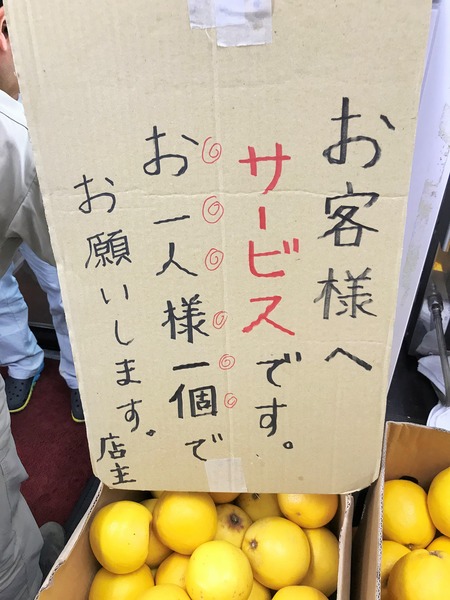 お客様へ
サービスです。
お一人様一個で
お願いします。
店主